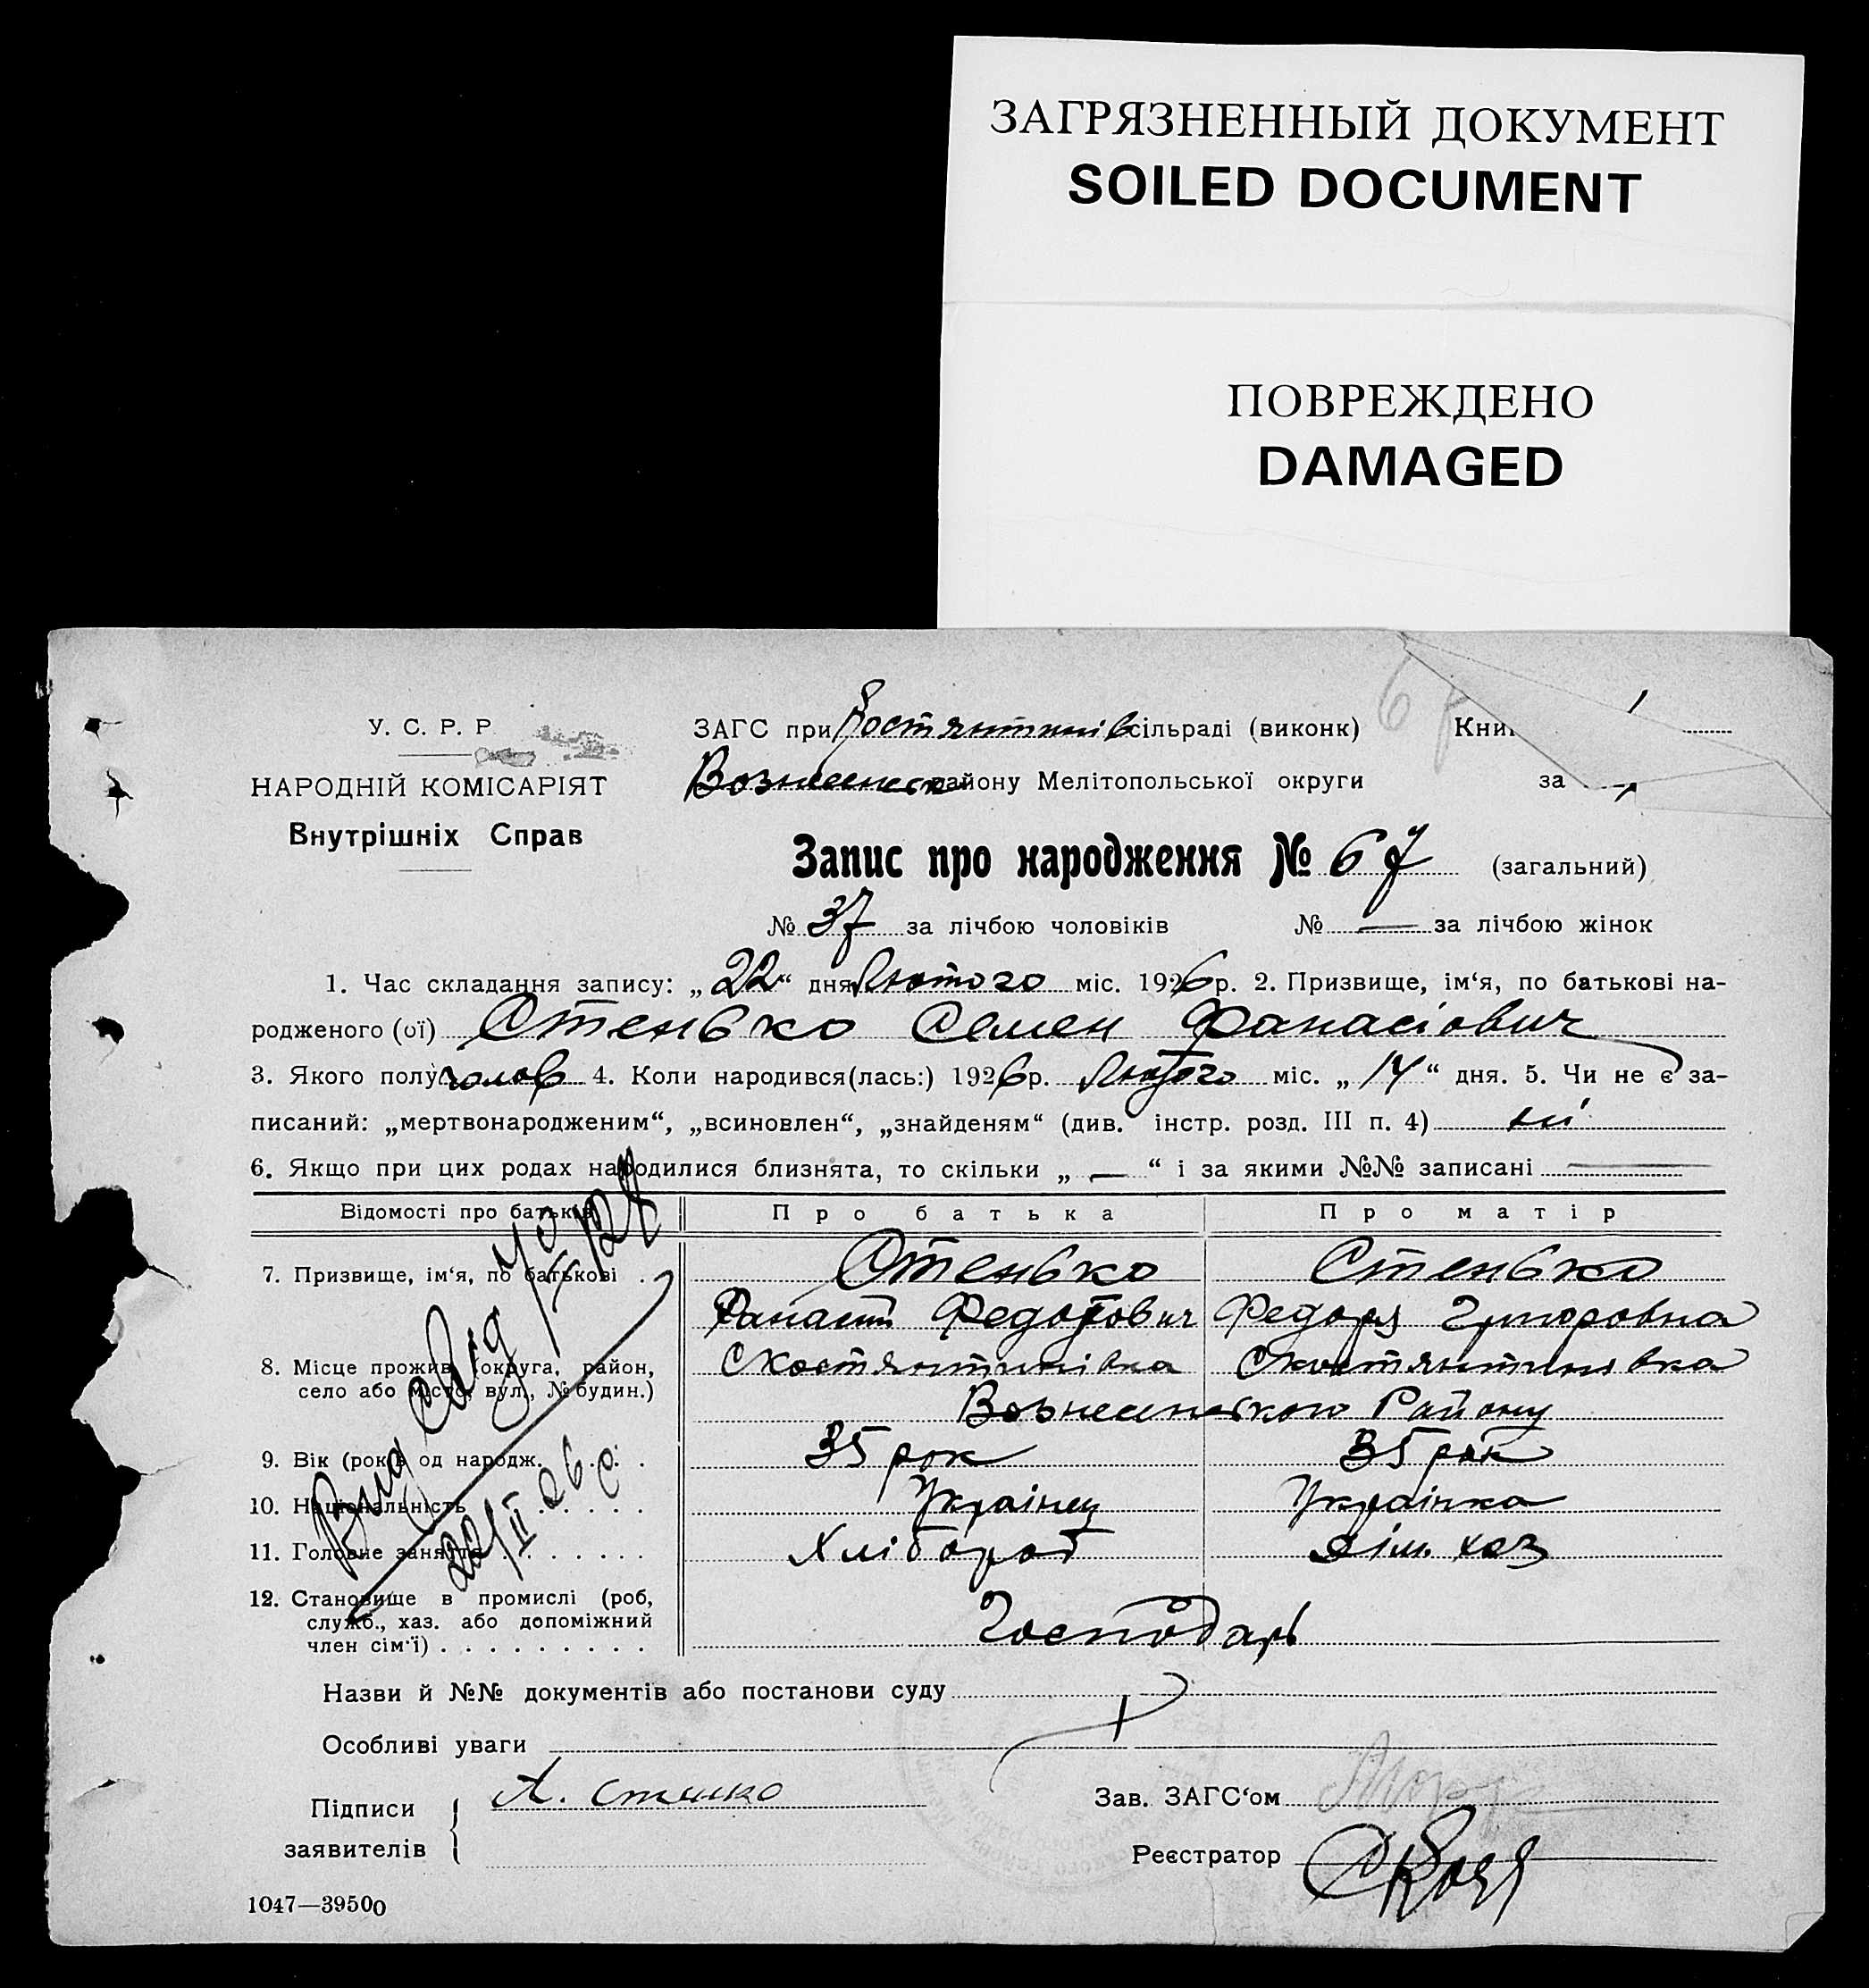 ЗАГРЯЗНЕННЫЙ ДОКУМЕНТ
SOILED DOCUMENT
ПОВРЕЖДЕНО
DAMAGED
У. С. Р. Р.
НАРОДНІЙ КОМІСАРІЯТ
Внутрішніх Справ
ЗАГС при Костянтинів сільраді (виконк) 67 Кни
Вознесенск району Мелітопольської округи за
Запис про народження № 67 (загальний)
№ 37 за лічбою чоловіків № — за лічбою жінок
1. Час складання запису: „22“ дня Лютого міс. 1926 р. 2. Призвище, ім‘я, по батькові на-
родженого (ої) Стенько Семен Фанасіович
3. Якого полу чолов 4. Коли народився(лась:) 1926 р. Лютого міс. „14“ дня. 5. Чи не є за-
писаний: „мертвонародженим“, „всиновлен“, „знайденям“ (див. інстр. розд. III п. 4) ні
6. Якщо при цих родах народилися близнята, то скільки „—“ і за якими №№ записані —
Відомості про батьків Про батька Про матір
7. Призвище, ім‘я, по батькові . Стенько Стенько
Федотович Федора Григоровна
8. Місце прожив. (округа, район, с Костянтинівка с Костянтиновка
село або місто, вул., № будин.)
Вознесенского Району
9. Вік (років од народж. . . . . 35 рок 35 рок
10. Національність . . . . . Украінец Украінка
11. Головне заняття . . . . . . . Хлібороб дім. хаз
12. Становище в промислі (роб,
служб., хаз. або допоміжний
член сім‘ї) . . . . . . . . . Господарь
22/II 26 р
Назви й №№ документів або постанови суду
Особливі уваги
Підписи А. Стенко Зав. ЗАГС‘ом
заявителів Реєстратор
1047—39500